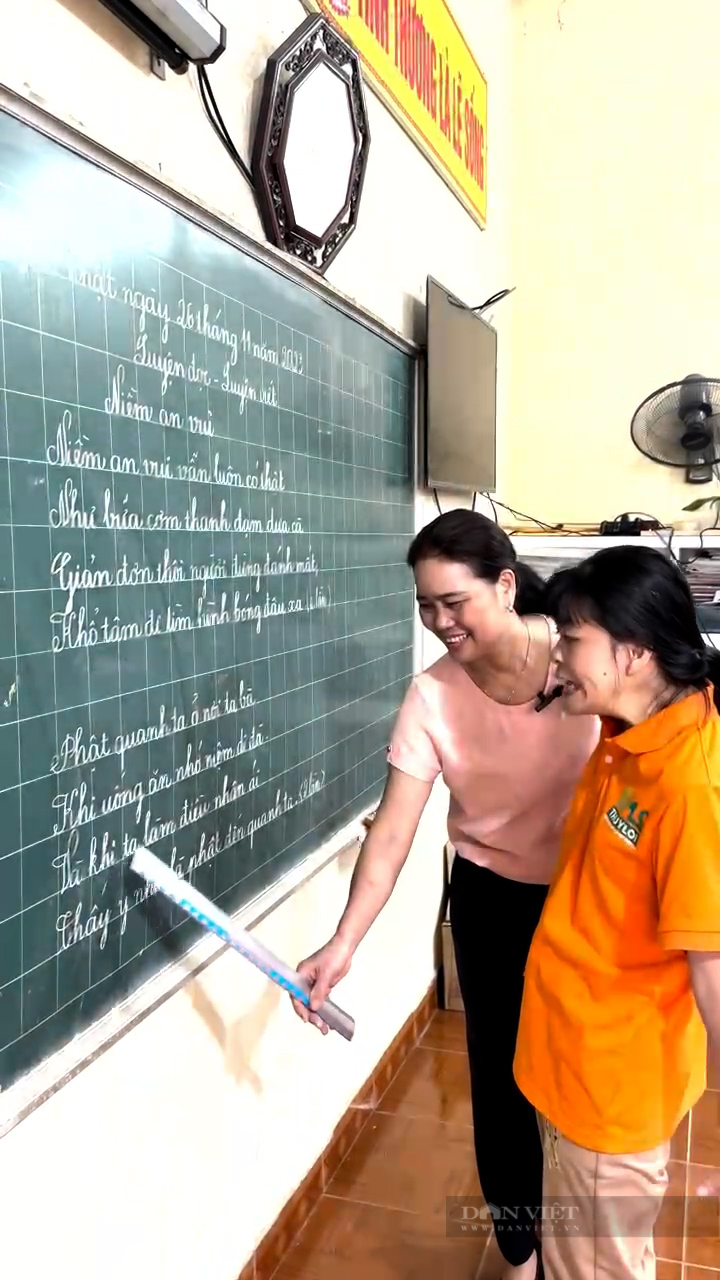 TÌNH THƯƠNG LÀ LẼ SỐNG
nhật ngày 26 tháng 11 năm 2023
Luyện đọc - Luyện viết
Niềm an vui
Niềm an vui vẫn luôn có thật
Như bữa cơm thanh đạm dưa cà
Giản đơn thôi người đừng đánh mất,
Khổ tâm đi tìm hình bóng đâu xa
Phật quanh ta ở nơi ta bà
Khi uống ăn nhớ niệm di đà.
Và khi ta làm điều nhân ái
Thấy y như là phật đến quanh ta. (2 lần)
THUYLOI
DÂN VIỆT
WWW.DANVIET.VN